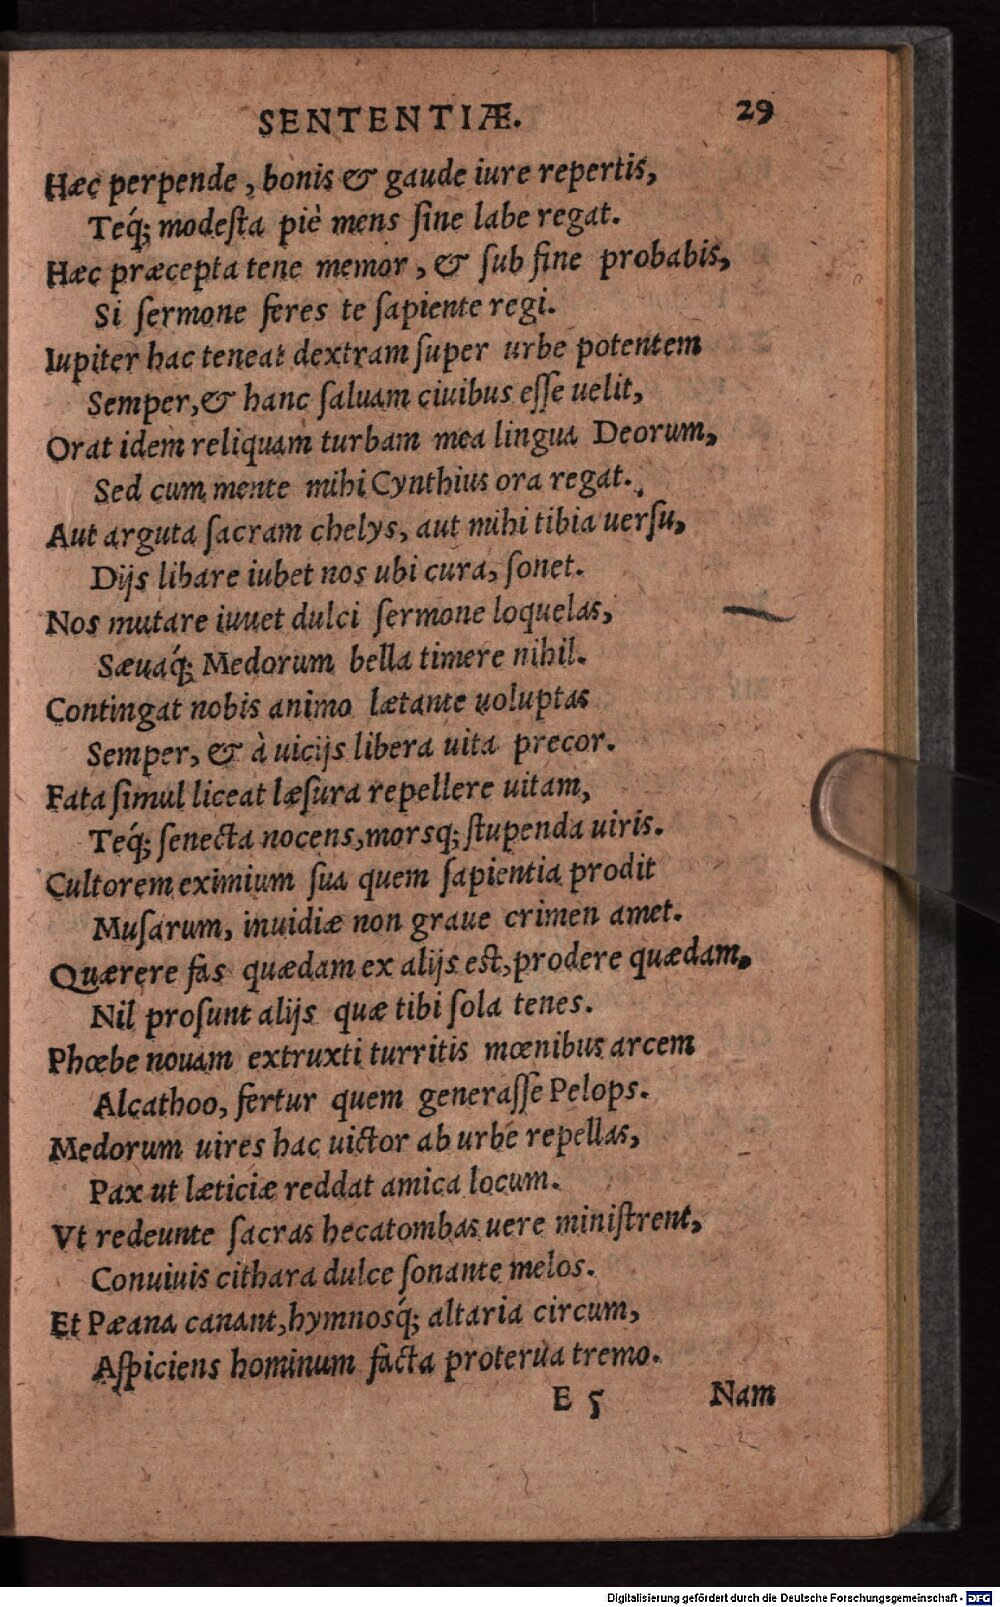 SENTENTIÆ. 29
Hæc perpende, bonis & gaude iure repertis,
Teq́; modeſta piè mens ſine labe regat.
Hæc præcepta tene memor, & ſub fine probabis,
Si ſermone feres te ſapiente regi.
Iupiter hac teneat dextram ſuper urbe potentem
Semper, & hanc ſaluam ciuibus eſſe uelit,
Orat idem reliquam turbam mea lingua Deorum,
Sed cum mente mihi Cynthius ora regat.
Aut arguta ſacram chelys, aut mihi tibia uerſu,
Dijs libare iubet nos ubi cura, ſonet.
Nos mutare iuuet dulci ſermone loquelas,
Sæuaq́; Medorum bella timere nihil.
Contingat nobis animo lætante uoluptas
Semper, & à uicijs libera uita precor.
Fata ſimul liceat læſura repellere uitam,
Teq́; ſenecta nocens, morsq; ſtupenda uiris.
Cultorem eximium ſua quem ſapientia prodit
Muſarum, inuidiæ non graue crimen amet.
Quærere fas quædam ex alijs eſt, prodere quædam.
Nil proſunt alijs quæ tibi ſola tenes.
Phœbe nouam extruxti turritis mœnibus arcem
Alcathoo, fertur quem generaſſe Pelops.
Medorum uires hac uictor ab urbe repellas,
Pax ut læticiæ reddat amica locum.
Vt redeunte ſacras hecatombas uere miniſtrent,
Conuiuis cithara dulce ſonante melos.
Et Pæana canant, hymnosq́; altaria circum,
Aſpiciens hominum facta proterua tremo.
E 5 Nam
Digitalisierung gefördert durch die Deutsche Forschungsgemeinschaft - DFG